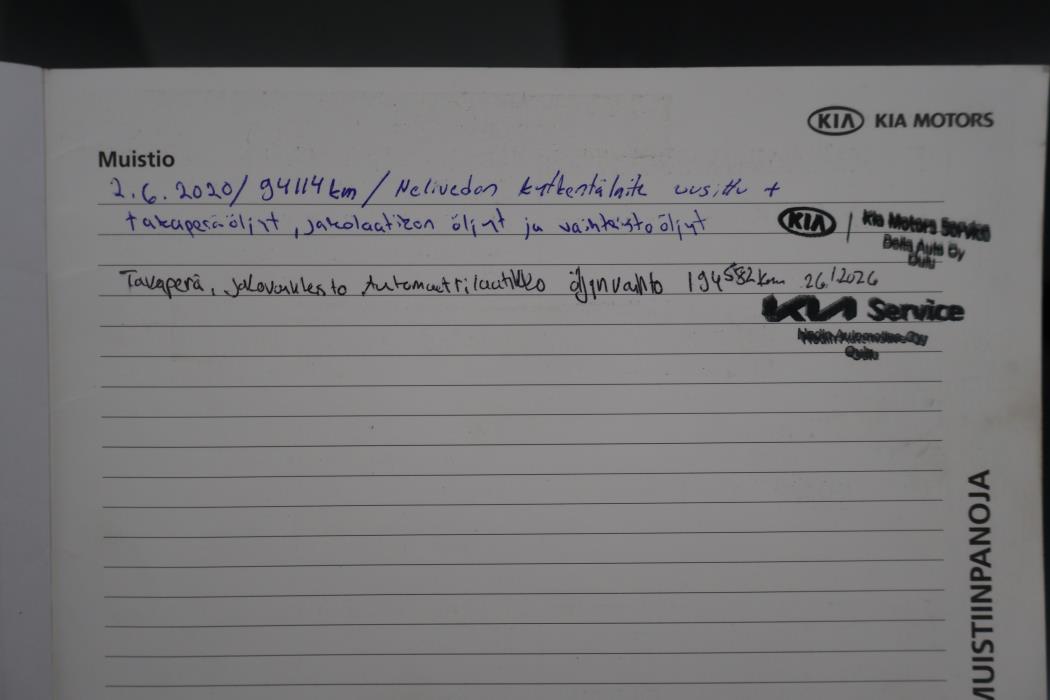 KIA KIA MOTORS
Muistio
2.6.2020 / 94114 km / Nelivedon kytkentälaite uusittu +
takaperä öljyt, jakolaatikon öljyt ja vaihteisto öljyt
KIA | Kia Motors Service
Delta Auto Oy
Oulu
Takaperä, jakovaihteisto Automaattilaatikko öljynvaihto 194582 km 26/2026
KIA Service
Oulu
MUISTIINPANOJA